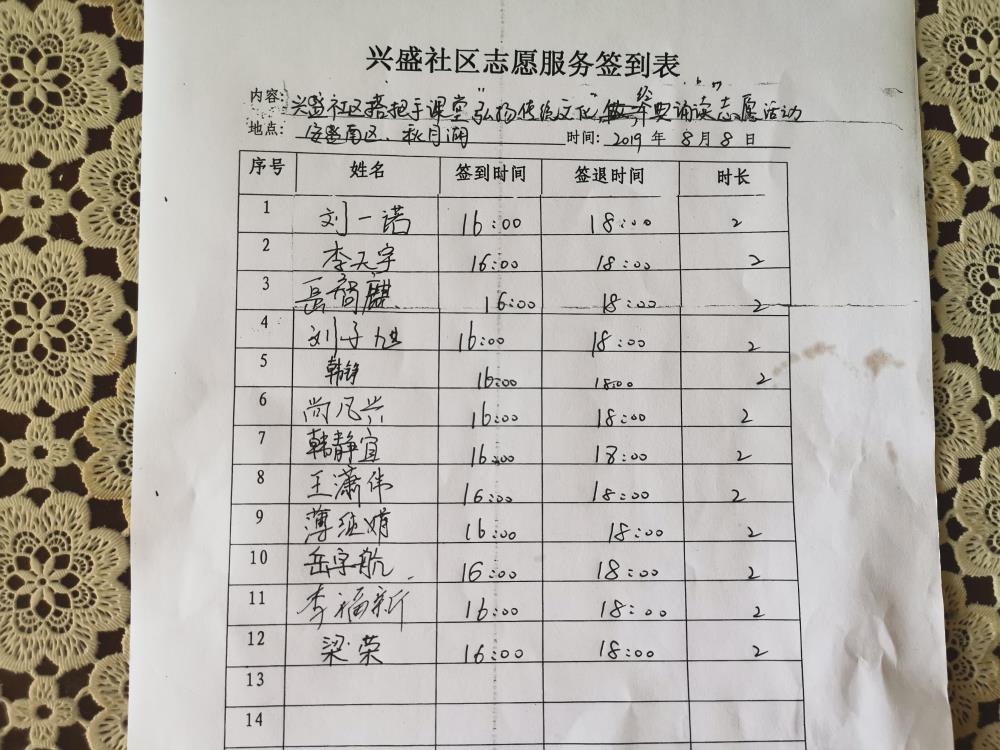 兴盛社区志愿服务签到表
内容: 兴盛社区搭把手课堂"弘扬传统文化"经典诵读"志愿活动
地点: 安盛南区、秋月湖 时间: 2019 年 8 月 8 日
序号 姓名 签到时间 签退时间 时长
1 刘一诺 16:00 18:00 2
2 李天宇 16:00 18:00 2
3 岳 麒 16:00 18:00 2
4 刘子旭 16:00 18:00 2
5 韩铮 16:00 18:00 2
6 尚凡兴 16:00 18:00 2
7 韩静宜 16:00 18:00 2
8 王潇伟 16:00 18:00 2
9 薄延娟 16:00 18:00 2
10 岳宇航 16:00 18:00 2
11 李福新 16:00 18:00 2
12 梁荣 16:00 18:00 2
13
14